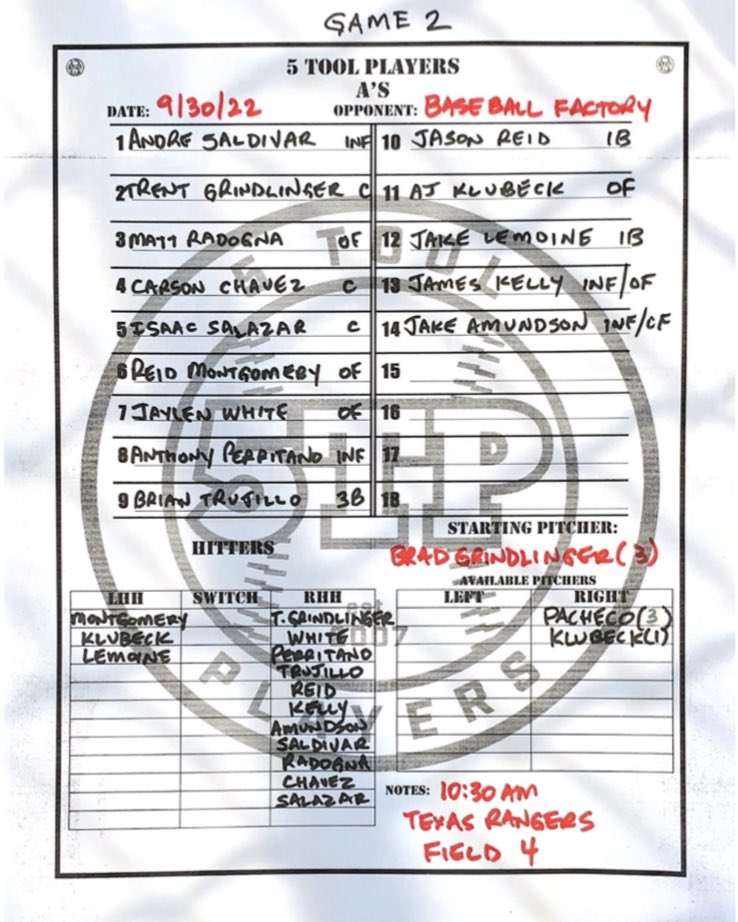 GAME 2
5 TOOL PLAYERS
A'S
DATE: 9/30/22 OPPONENT: BASEBALL FACTORY
1 ANDRE SALDIVAR INF 10 JASON REID 1B
2 TRENT GRINDLINGER C 11 AJ KLUBECK OF
3 MATT RADOGNA OF 12 JAKE LEMOINE 1B
4 CARSON CHAVEZ C 13 JAMES KELLY INF/OF
5 ISAAC SALAZAR C 14 JAKE AMUNDSON INF/CF
6 REID MONTGOMERY OF 15
7 JAYLEN WHITE OF 16
8 ANTHONY PERRITANO INF 17
9 BRIAN TRUJILLO 3B 18
5 TOOL
5TP
EST.
2007
PLAYERS
HITTERS
LHH SWITCH RHH
MONTGOMERY T. GRINDLINGER
KLUBECK WHITE
LEMOINE PERRITANO
TRUJILLO
REID
KELLY
AMUNDSON
SALDIVAR
RADOGNA
CHAVEZ
SALAZAR
STARTING PITCHER:
BRAD GRINDLINGER (3)
AVAILABLE PITCHERS
LEFT RIGHT
PACHECO (3)
KLUBECK (1)
NOTES: 10:30 AM
TEXAS RANGERS
FIELD 4